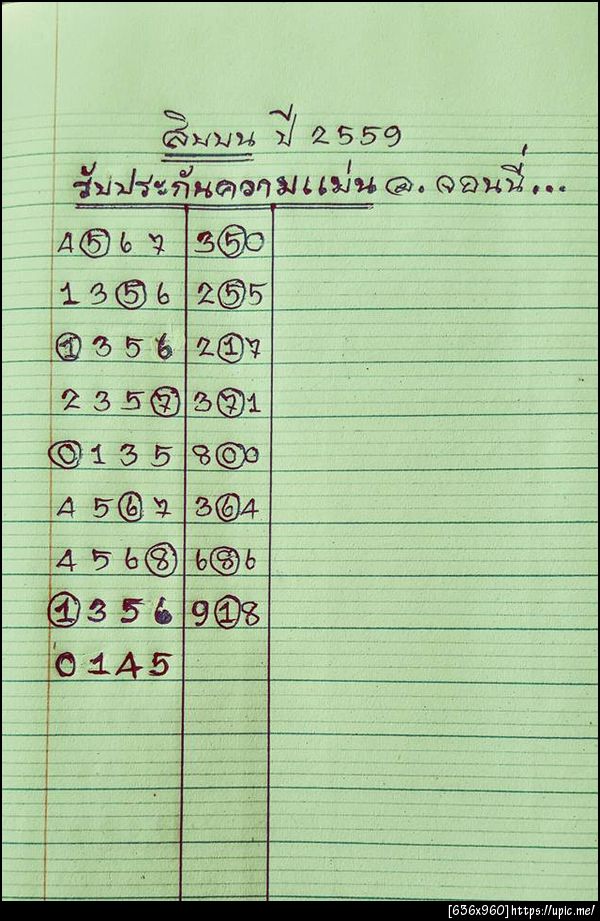 สิบบน ปี 2559
รับประกันความแม่น อ. จอนนี่...
4567 350
1356 255
1356 217
2357 371
0135 800
4567 364
4568 686
1356 918
0145
[636x960]https://upic.me/